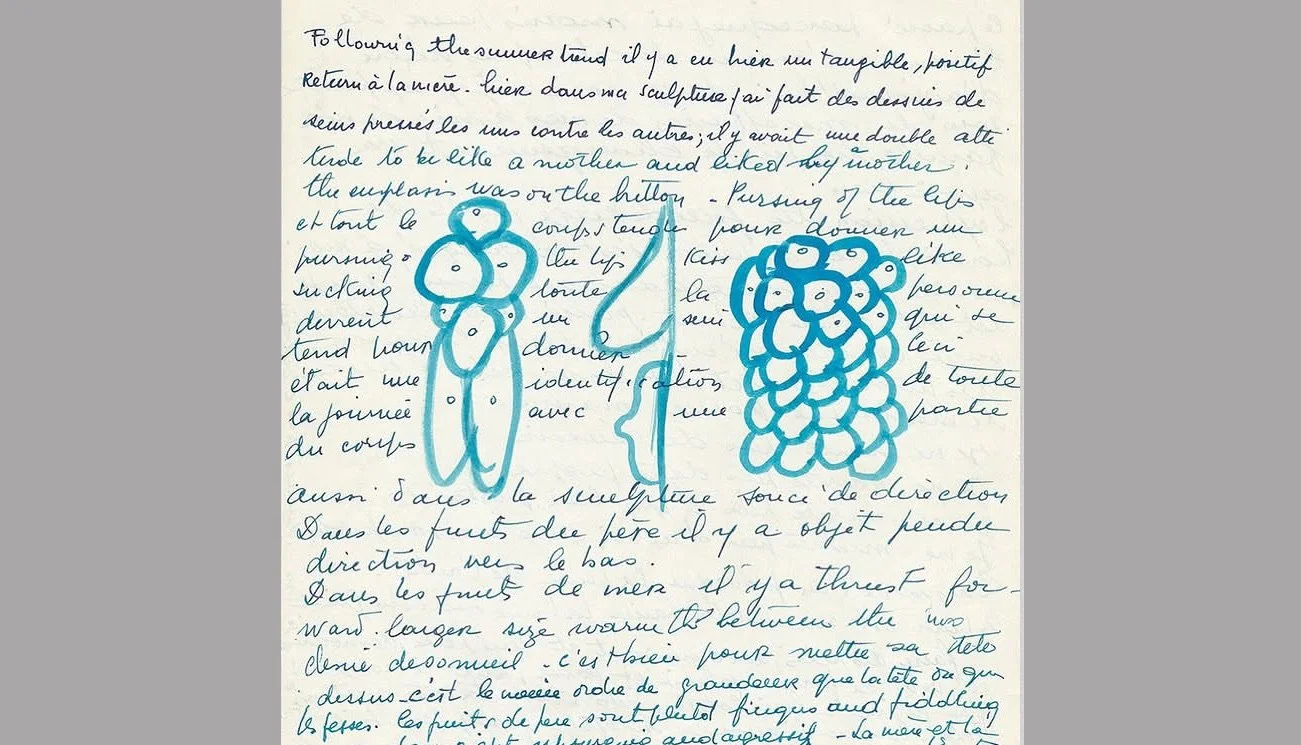 Following the summer trend il y a eu hier un tangible, positif
Return à la mère. hier dans ma sculpture j'ai fait des dessins de
seins pressés les uns contre les autres; il y avait une double atti
tude to be like a mother and liked by a mother.
the emphasis was on the button - Pursing of the lips
et tout le corps tendu pour donner un
pursing the lips kiss like
sucking toute la personne
devient un sein qui se
tend pour donner - ceci
était une identification de toute
la journée avec une partie
du corps
aussi dans la sculpture souci de direction
Dans les fruits du père il y a objet pendu
direction vers le bas.
Dans les fruits de mer il y a thrust for-
ward. larger size warmth between the
de sommeil - c'est bien pour mettre sa tête
dessus - c'est le même ordre de grandeur que la tête ou que
les fesses. les fruits de père sont plutôt fingers and fiddling
and agressif - La mère et la